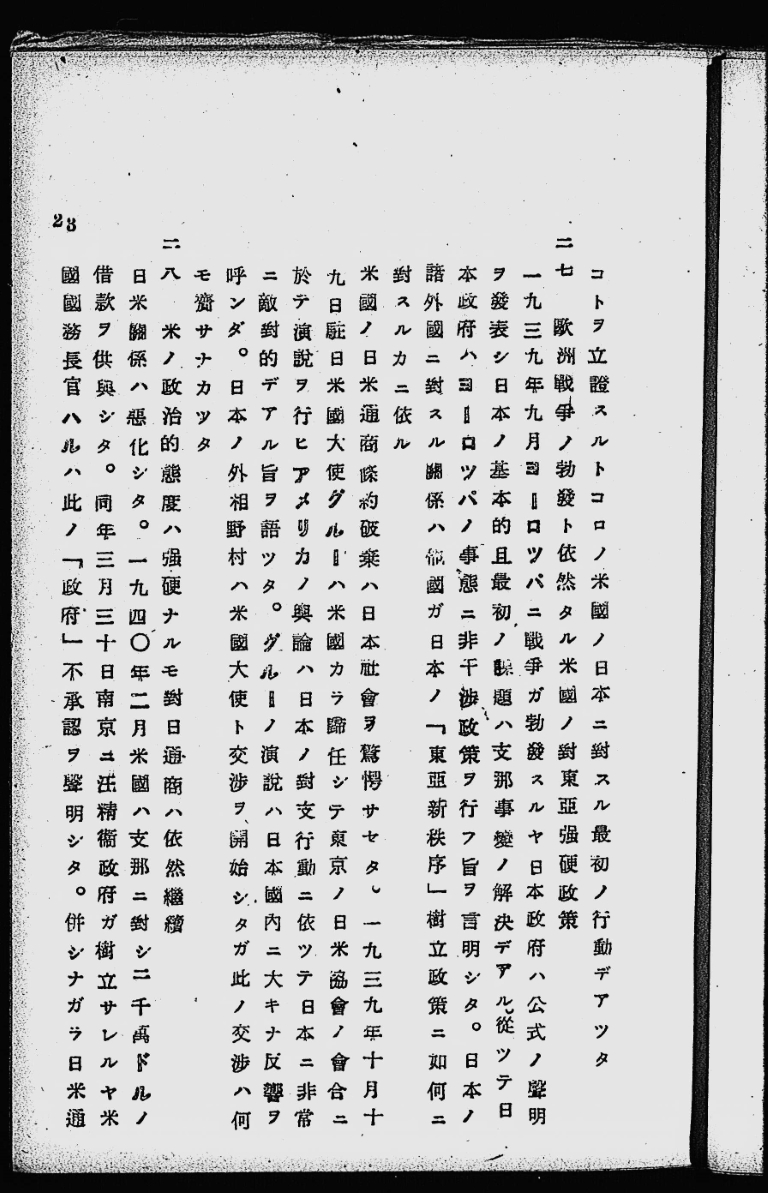 コトヲ立證スルトコロノ米國ノ日本ニ對スル最初ノ行動デアツタ
二七 歐洲戰爭ノ勃發ト依然タル米國ノ對東亞强硬政策
一九三九年九月ヨーロツパニ戰爭ガ勃發スルヤ日本政府ハ公式ノ聲明
ヲ發表シ日本ノ基本的且最初ノ課題ハ支那事變ノ解決デアル從ツテ日
本政府ハヨーロツパノ事態ニ非干涉政策ヲ行フ旨ヲ言明シタ。日本ノ
諸外國ニ對スル關係ハ他國ガ日本ノ「東亞新秩序」樹立政策ニ如何ニ
對スルカニ依ル
米國ノ日米通商條約破棄ハ日本社會ヲ驚愕サセタ。一九三九年十月十
九日駐日米國大使グルーハ米國カラ歸任シテ東京ノ日米協會ノ會合ニ
於テ演說ヲ行ヒアメリカノ輿論ハ日本ノ對支行動ニ依ツテ日本ニ非常
ニ敵對的デアル旨ヲ語ツタ。グルーノ演說ハ日本國內ニ大キナ反響ヲ
呼ンダ。日本ノ外相野村ハ米國大使ト交涉ヲ開始シタガ此ノ交涉ハ何
モ齎サナカツタ
二八 米ノ政治的態度ハ强硬ナルモ對日通商ハ依然繼續
日米關係ハ惡化シタ。一九四〇年二月米國ハ支那ニ對シ二千萬ドルノ
借款ヲ供與シタ。同年三月三十日南京ニ汪精衞政府ガ樹立サレルヤ米
國國務長官ハルハ此ノ「政府」不承認ヲ聲明シタ。併シナガラ日米通
23